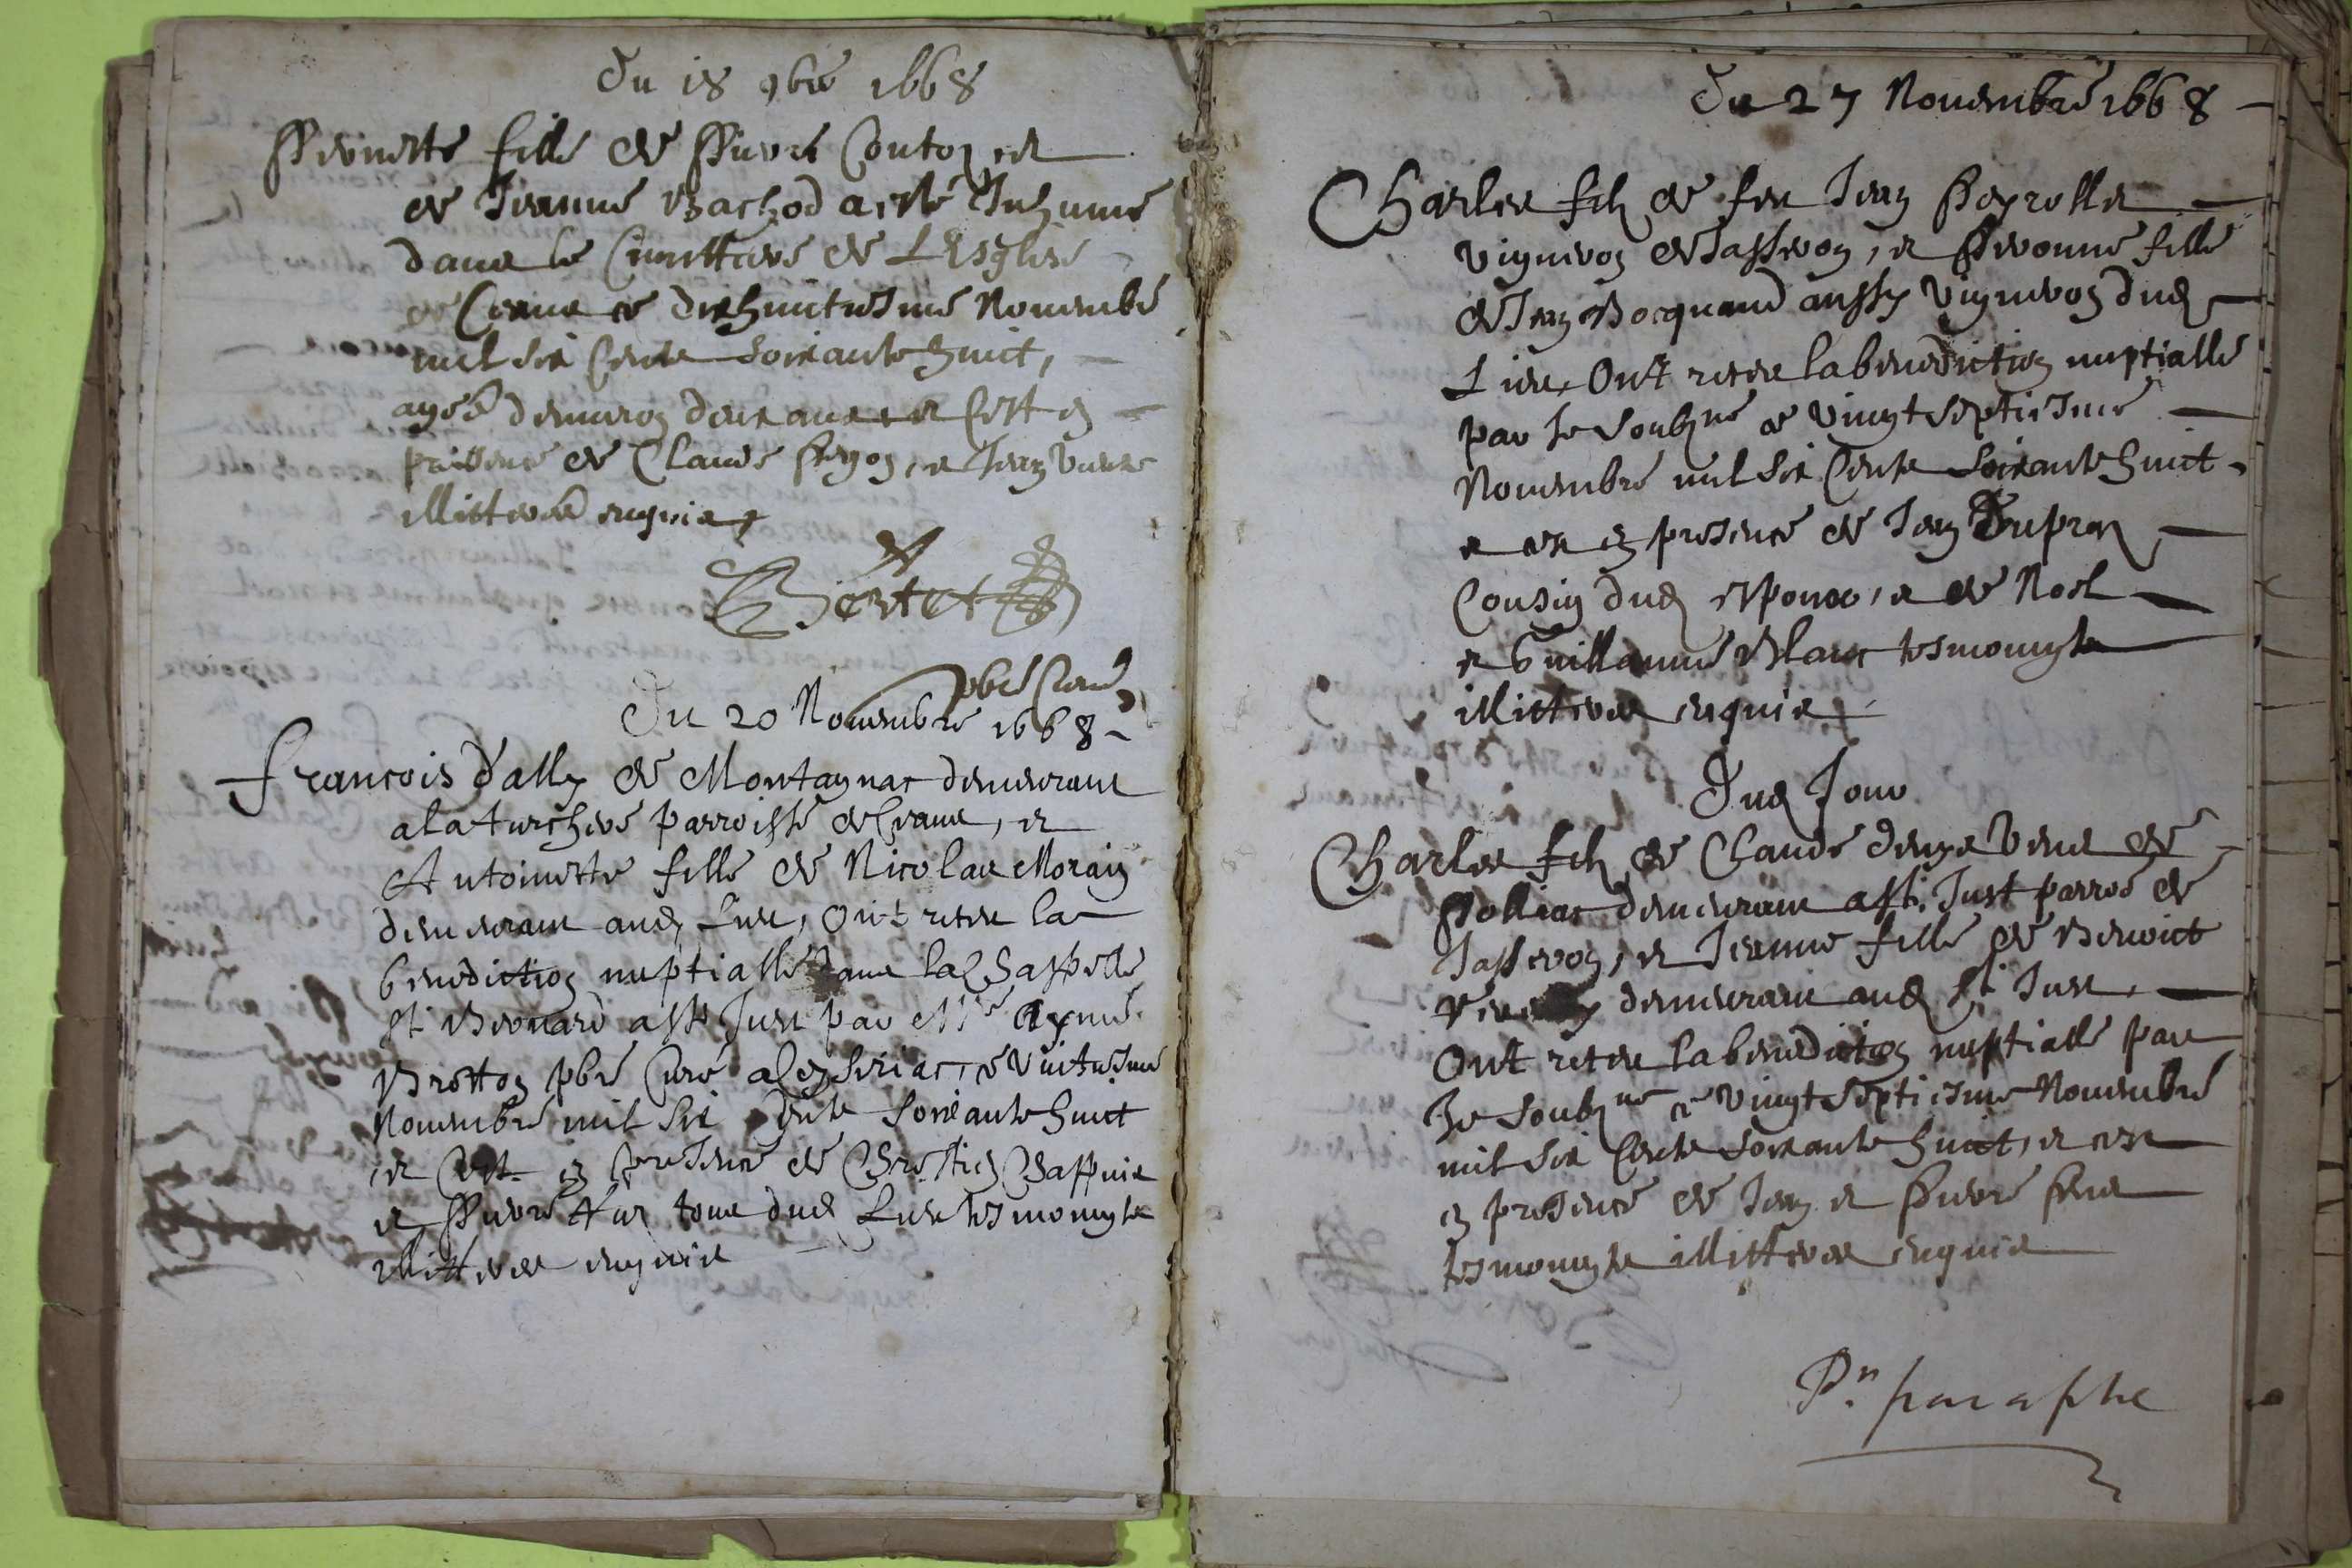 Du 18 9bre 1668
Pierrette fille de Pierre Couton et
de Jeanne Bachod a esté Inhumé
dans le Cimittiere de L'Esglise
de Ceans ce dixhuictiesme Novembre
mil six Cents soixante huict,
agéé d'environ deux ans et C'est en
presence de Claude et Jean
illitteres enquis
Bertet
pbre Curé
Du 20 Novembre 1668
francois d'ally de Montagnac demeurant
a la turchere parroisse de Ceans, et
Antoinette fille de Nicolas Morain
demeurant aud Lieu, Ont receu la
benediction nuptialle dans la Chappelle
St Bernard a St Just par Mre Aymé
Brotton pbre Curé a Ceyseriac, ce vintiesme
Novembre mil six Cents soixante huict
et C'est en presence de Chrestien Chappuis
et Pierre tous dud Lieu tesmoingts
illitteres enquis
Du 27 Novembre 1668
Charles fils de feu Jean Peyrolles
vigneron de Jasseron, et Pierronne fille
de Jean Bocquand aussy vigneron dud
Lieu, Ont receu la benediction nuptialle
par Je Soubzne ce vingt septiesme
Novembre mil six Cents soixante huict
et ce en presence de Jean Dupras
Cousin dud espoux, et de Noel
et Guillaume Blanc tesmoingts
illitteres enquis
Dud Jour
Charles fils de Claude veuf de
Polliat demeurant a St. Just parroe de
Jasseron, et Jeanne fille de Benoict
demeurant aud St Just,
Ont receu la benediction nuptialle par
Je Soubzne ce vingt septiesme Novembre
mil six Cents soixante huict, et ce
en presence de Jean et Pierre
tesmoingts illitteres enquis
Pn paraphe